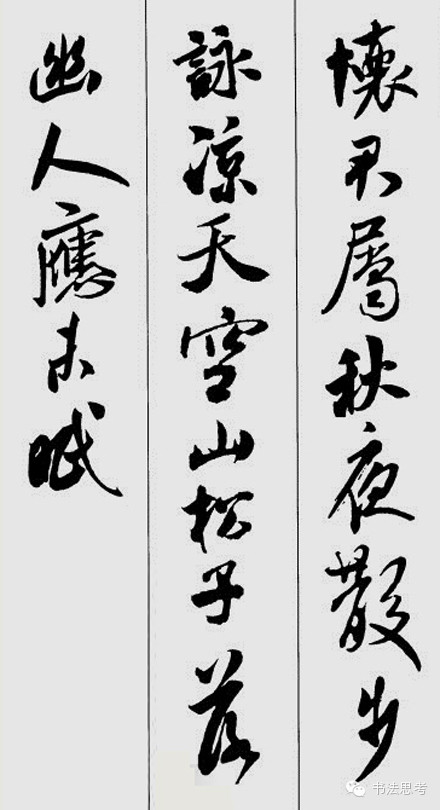 懷君屬秋夜散步
詠涼天空山松子落
幽人應未眠
书法思考